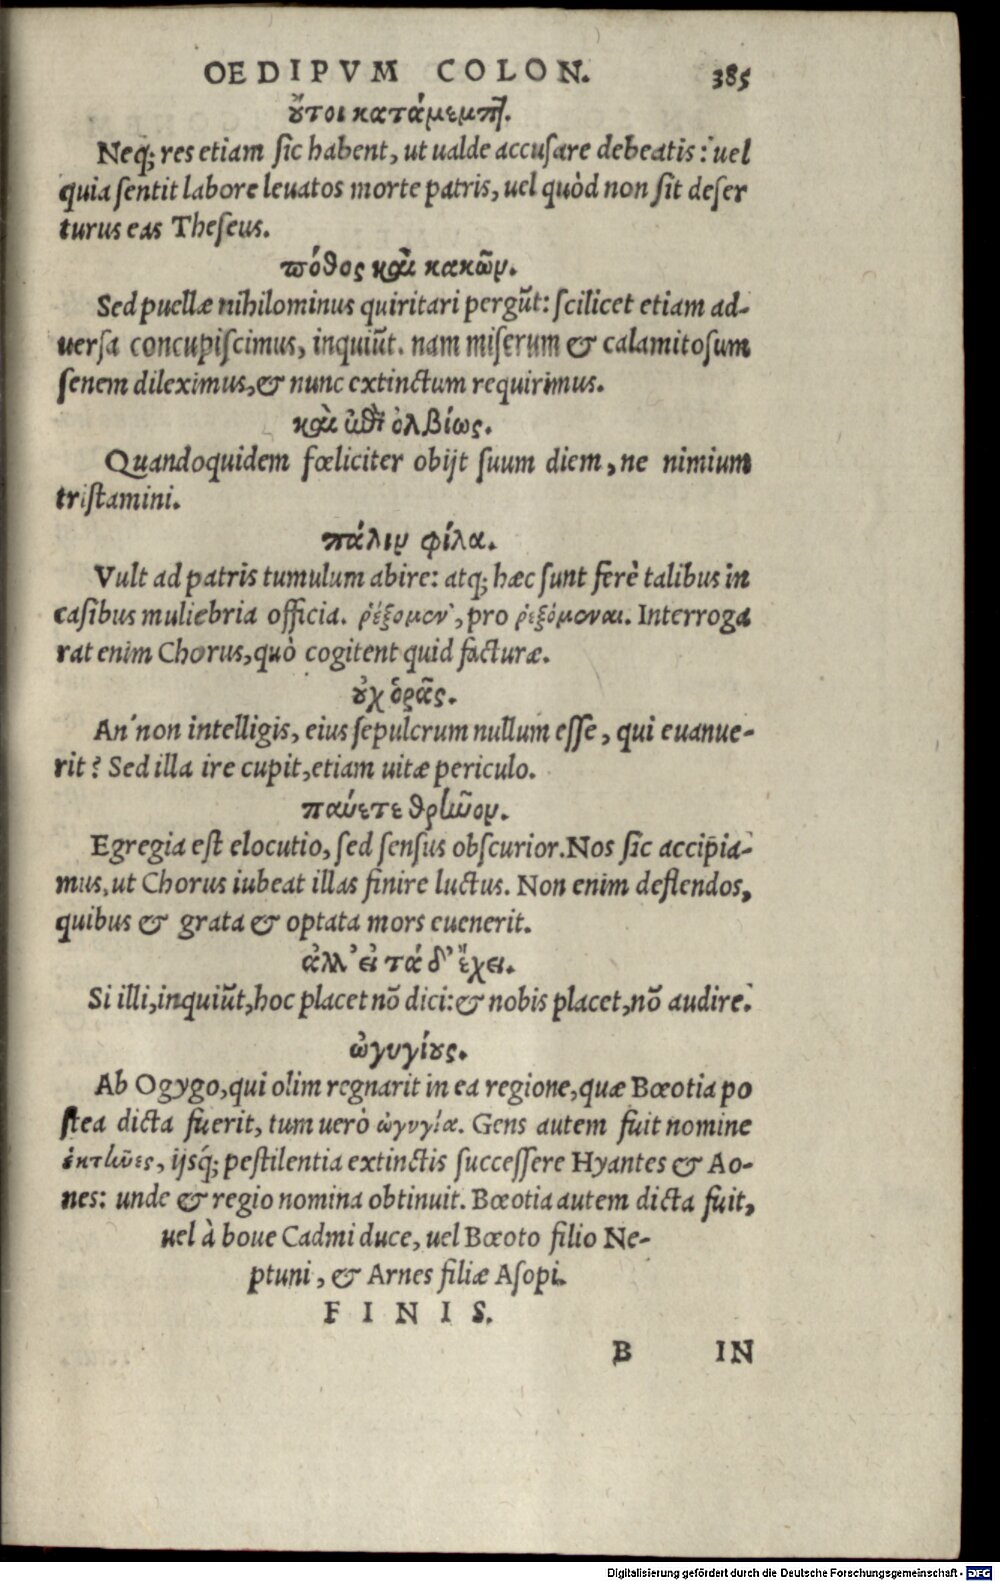 OEDIPVM COLON. 385
ȣ̓́τοι κατάμεμπ̓.
Neq; res etiam ſic habent, ut ualde accuſare debeatis: uel
quia ſentit labore leuatos morte patris, uel quòd non ſit deſer
turus eas Theſeus.
πόθος καὶ κακῶν.
Sed puellæ nihilominus quiritari pergūt: ſcilicet etiam ad-
uerſa concupiſcimus, inquiūt. nam miſerum & calamitoſum
ſenem dileximus, & nunc extinctum requirimus.
ὀλβίως.
Quandoquidem fœliciter obijt ſuum diem, ne nimium
triſtamini.
πάλιν φίλα.
Vult ad patris tumulum abire: atq; hæc ſunt ferè talibus in
caſibus muliebria officia. ῥέξομεν, pro ῥεξόμεναι. Interroga
rat enim Chorus, quò cogitent quid facturæ.
ȣ̓χ ὁρᾶς.
An' non intelligis, eius ſepulcrum nullum eſſe, qui euanue-
rit? Sed illa ire cupit, etiam uitæ periculo.
παύετε θρῆνον.
Egregia eſt elocutio, ſed ſenſus obſcurior. Nos ſic accipia-
mus, ut Chorus iubeat illas finire luctus. Non enim deflendos,
quibus & grata & optata mors euenerit.
ἀλλ' εἰ τάδ' ἔχει.
Si illi, inquiūt, hoc placet nō dici: & nobis placet, nō audire.
ὠγυγίȣς.
Ab Ogygo, qui olim regnarit in ea regione, quæ Bœotia po
ſtea dicta fuerit, tum uerò ὠγυγία. Gens autem fuit nomine
ἑκτῆνες, ijsq́; peſtilentia extinctis ſucceſſere Hyantes & Ao-
nes: unde & regio nomina obtinuit. Bœotia autem dicta fuit,
uel à boue Cadmi duce, uel Bœoto filio Ne-
ptuni, & Arnes filiæ Aſopi.
FINIS.
B IN
Digitalisierung gefördert durch die Deutsche Forschungsgemeinschaft - DFG